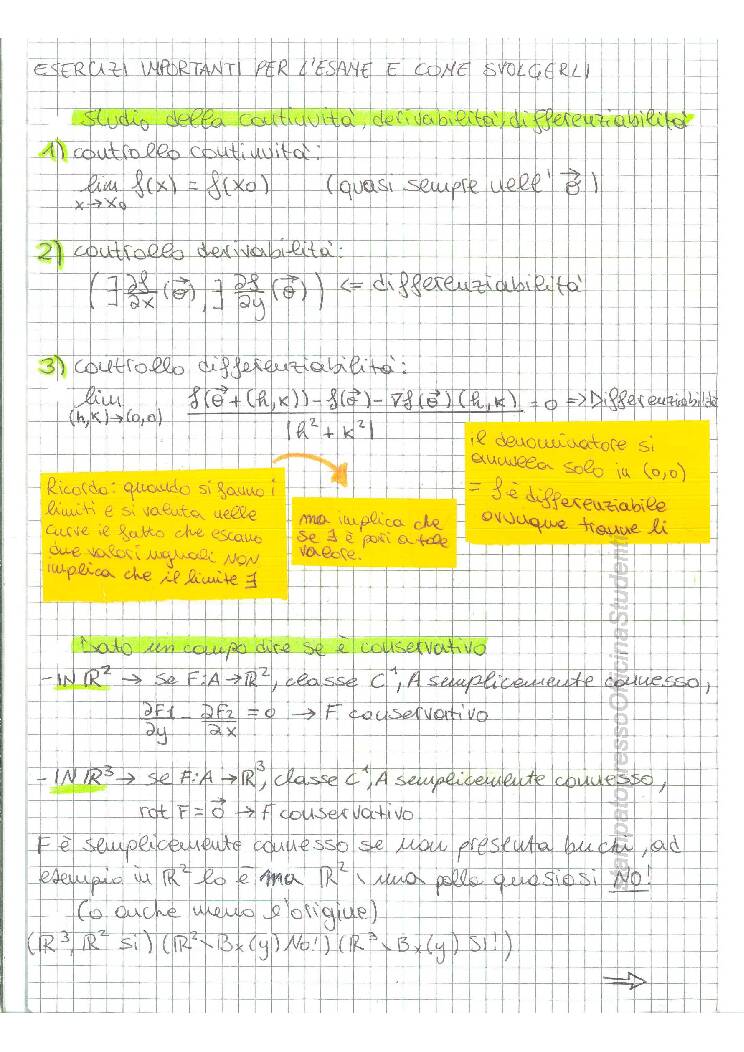 ESERCIZI IMPORTANTI PER L'ESAME E COME SVOLGERLI
Studio della continuità, derivabilità, differenziabilità
1) controllo continuità:
lim f(x) = f(x0) (quasi sempre nell' \vec{0})
x→x0
2) controllo derivabilità:
(∃ ∂f/∂x (\vec{0}), ∃ ∂f/∂y (\vec{0})) <= differenziabilità
3) controllo differenziabilità:
lim f(\vec{0}+(h,k))-f(\vec{0})-∇f(\vec{0})(h,k) = 0 => Differenziabilità
(h,k)→(0,0) |h²+k²|
il denominatore si
annulla solo in (0,0)
= f è differenziabile
ovunque tranne lì
Ricorda: quando si fanno i
limiti e si valuta nelle
curve il fatto che escano
due valori uguali NON
implica che il limite ∃
ma implica che
se ∃ è pari a tale
valore.
Dato un campo dire se è conservativo
- IN ℝ² → se F:A→ℝ², classe C¹, A semplicemente connesso,
∂F1/∂y - ∂F2/∂x = 0 → F conservativo
- IN ℝ³ → se F:A→ℝ³, classe C¹, A semplicemente connesso,
rot F = \vec{0} → F conservativo.
F è semplicemente connesso se non presenta buchi, ad
esempio in ℝ² lo è ma ℝ² \ una palla quasiasi NO!
(o anche meno l'origine)
(ℝ³, ℝ² si) (ℝ²\Bx(y) No!) (ℝ³\Bx(y) SI!)
⇒
stampatopressoOfficinaStudenti